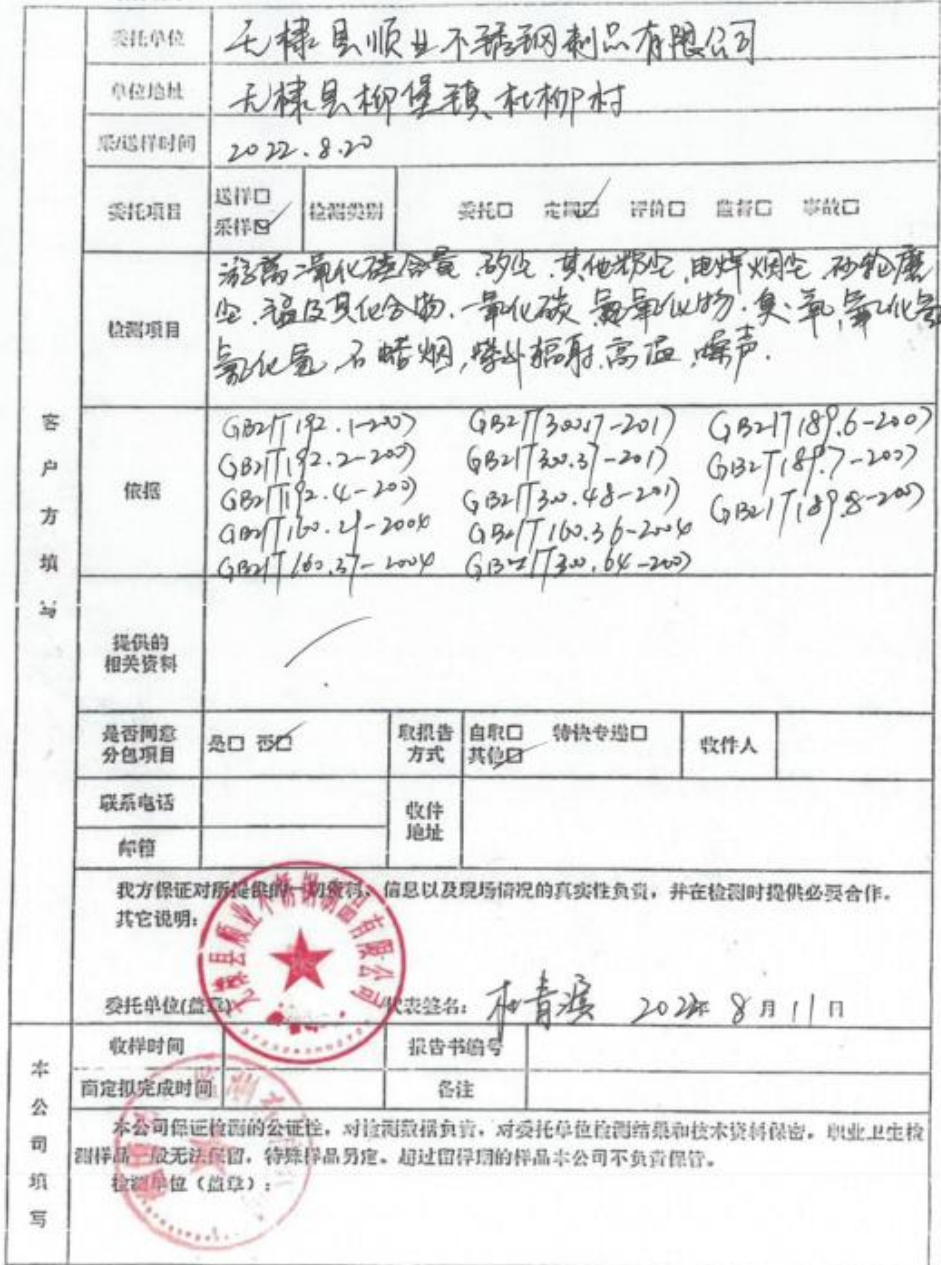 委托单位 无棣县顺业不锈钢制品有限公司
单位地址 无棣县柳堡镇杜柳村
采/送样时间 2022.8.20
委托项目 送样□ 采样☑ 检测类别 委托□ 定期☑ 评价□ 监督□ 事故□
检测项目
游离二氧化硅含量、矽尘、其他粉尘、电焊烟尘、砂轮磨
尘、锰及其化合物、一氧化碳、氮氧化物、臭氧、氟化氢
氯化氢、石蜡烟、紫外辐射、高温、噪声.
依据
GBZ/T192.1-2007 GBZ/T300.17-2017 GBZ/T189.6-2007
GBZ/T192.2-2007 GBZ/T300.37-2017 GBZ/T189.7-2007
GBZ/T192.4-2007 GBZ/T300.48-2017 GBZ/T189.8-2007
GBZ/T160.29-2004 GBZ/T160.36-2004
GBZ/T160.37-2004 GBZ/T300.64-2007
客户方填写
提供的
相关资料
是否同意
分包项目 是□ 否☑ 取报告
方式 自取□ 特快专递□
其他☑ 收件人
联系电话 收件
地址
邮箱
我方保证对所提供的一切资料、信息以及现场情况的真实性负责,并在检测时提供必要合作。
其它说明:
无棣县顺业不锈钢制品有限公司
委托单位(盖章) 代表签名: 2022年 8月 11日
本公司填写
收样时间 报告书编号
商定拟完成时间 备注
本公司保证检测的公证性,对检测数据负责,对委托单位检测结果和技术资料保密,职业卫生检
测样品一般无法保留,特殊样品另定。超过留样期的样品本公司不负责保管。
检测单位(盖章):